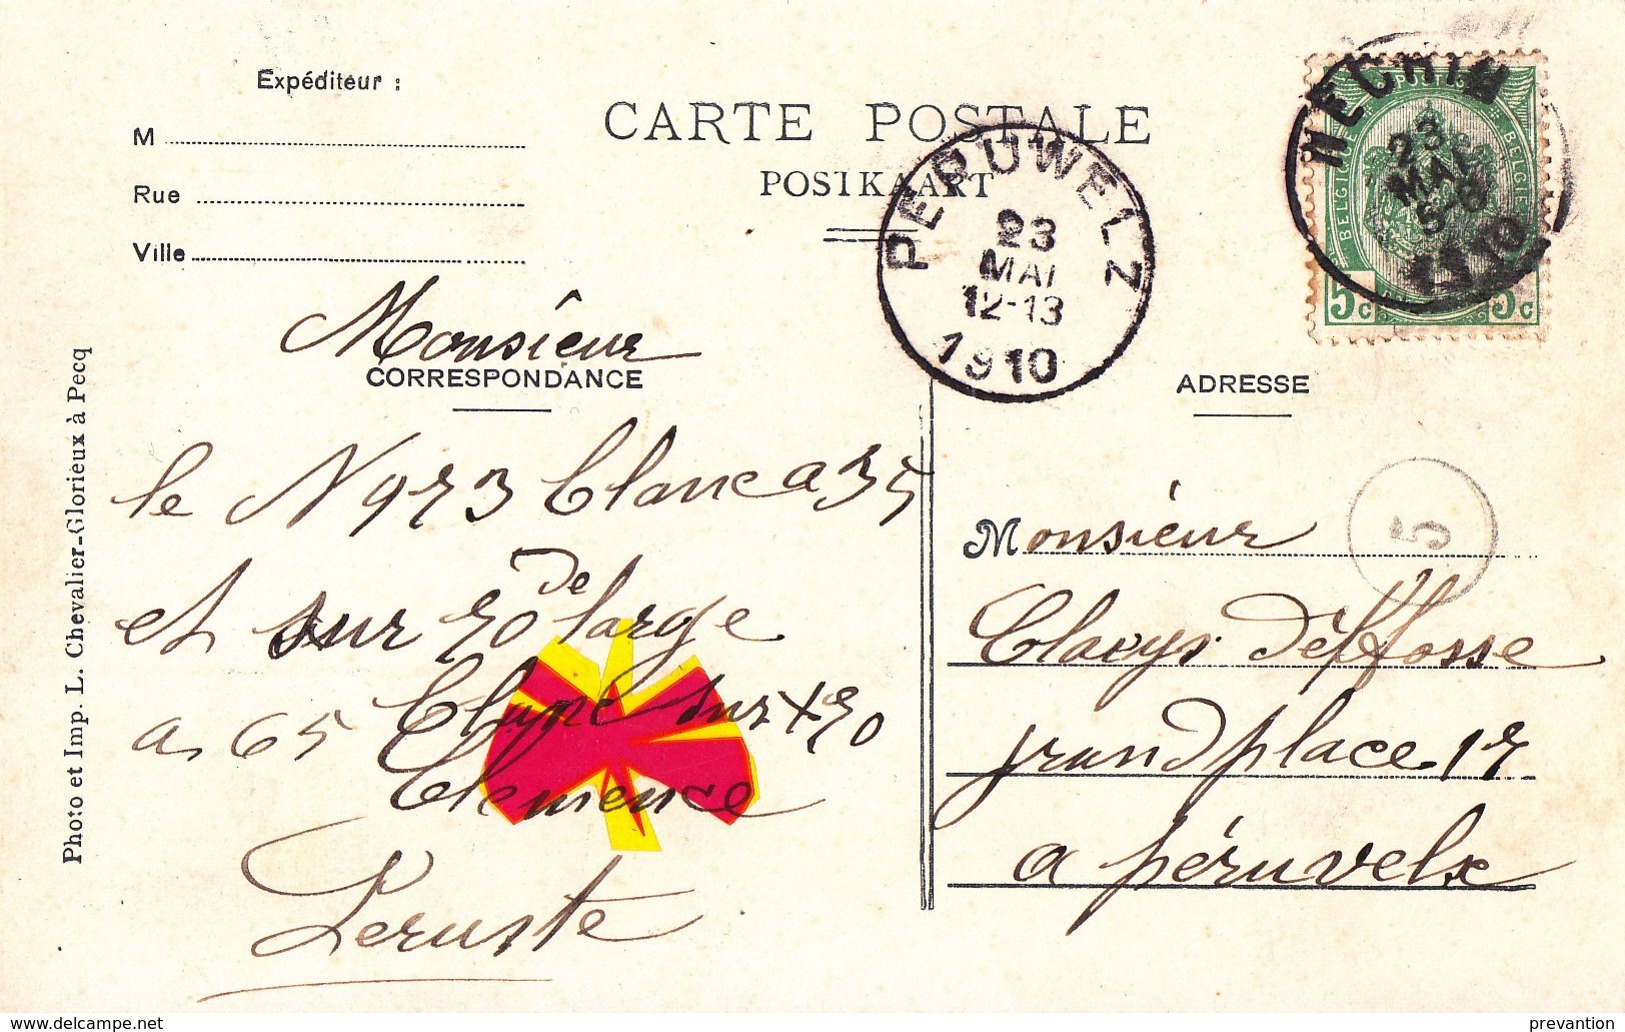 Expéditeur :
M
Rue
Ville
CARTE POSTALE
POSTKAART
PERUWELZ
23
MAI
12-13
1910
NECHIN
23
MAI
5-6
1910
BELGIQUE
BELGIE
5c
5c
Monsieur
CORRESPONDANCE
le N 973 blanc a 35
et sur 70 de large
a 65 blanc sur 70
Clemence
Leruste
ADRESSE
Monsieur
Claeys Deffosse
grand place 17
a péruvelx
5
Photo et Imp. L. Chevalier-Glorieux à Pecq
delcampe.net
prevantion